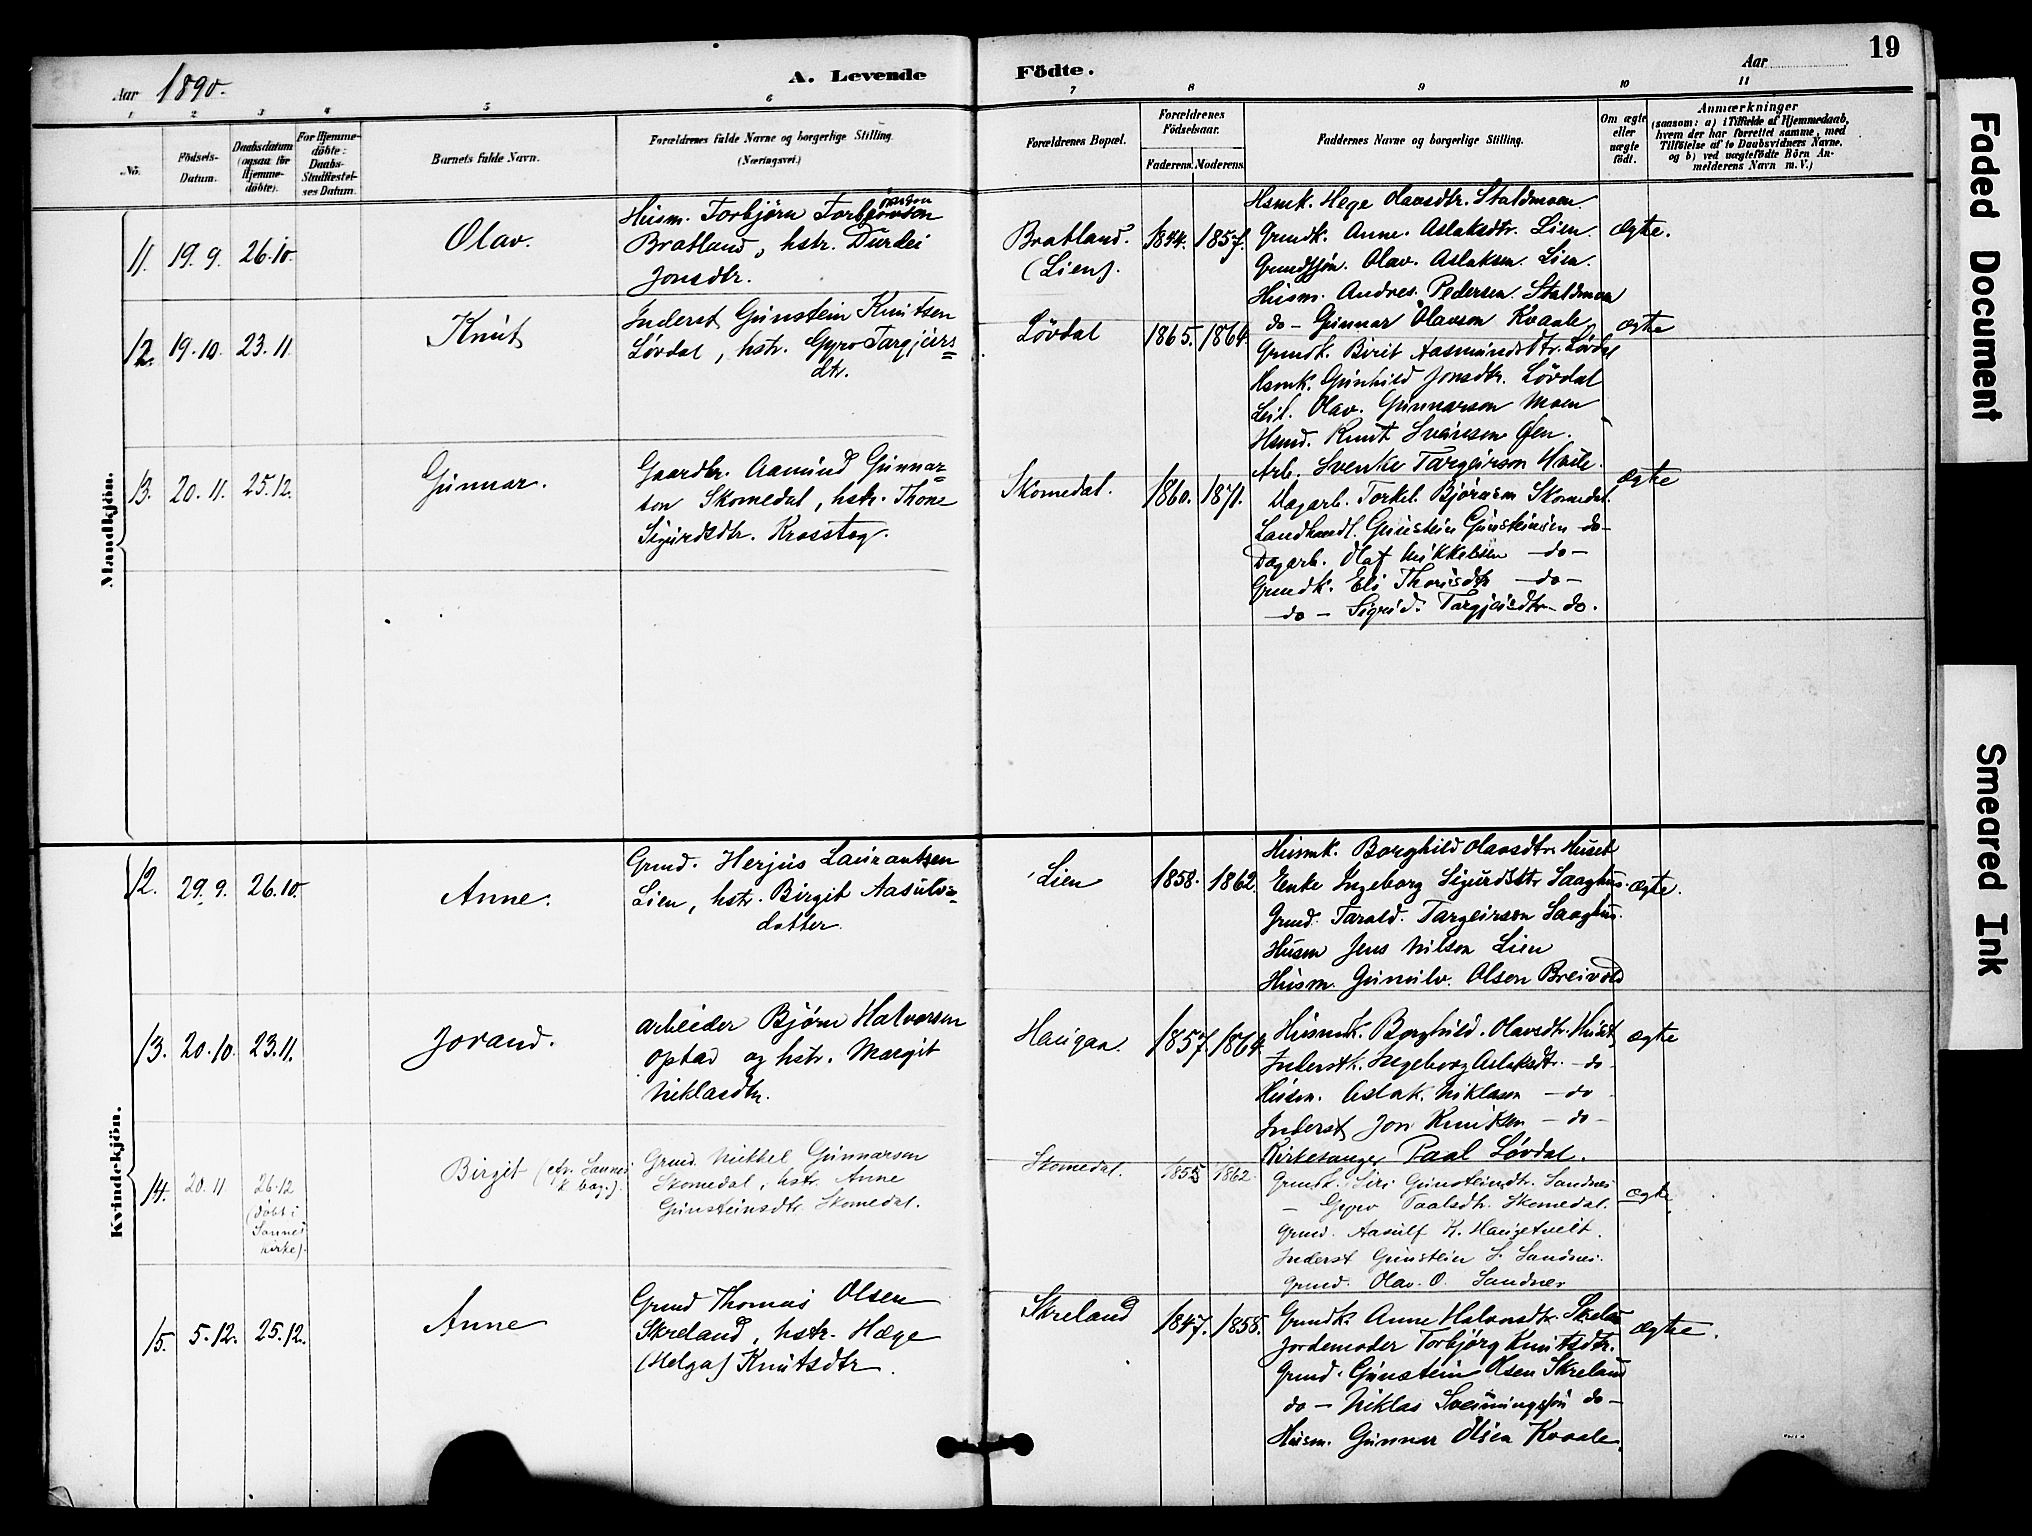 19
Aar 1890.
A. Levende Födte.
Aar
1 2 3 4 5 6 7 8 9 10 11
No.
Födsels-
Datum.
Daabsdatum
(ogsaa för
Hjemme-
döbte).
For Hjemme-
döbte:
Daabs-
Stadfæstel-
ses Datum.
Barnets fulde Navn.
Forældrenes fulde Navne og borgerlige Stilling.
(Næringsvei.)
Forældrenes Bopæl.
Forældrenes
Födselsaar.
Faderens. Moderens.
Faddernes Navne og borgerlige Stilling.
Om ægte
eller
uægte
födt.
Anmærkninger
(saasom: a) i Tilfælde af Hjemmedaab,
hvem der har forrettet samme, med
Tilföielse af to Daabsvidners Navne,
og b) ved uægtefödte Börn An-
melderens Navn m. V.)
Mandkjön.
11. 19.9. 26.10.
Olav.
Husm. Torbjörn Torbjörnson
Bratland, hstr. Durdei
Jonsdtr.
Bratland.
(Lien).
1844. 1857.
Hsmk. Hege Olavsdtr. Staldmoen.
Grundk. Anne. Aslaksdtr. Lien.
Olav. Aslaksen. Lien.
Husm. Andres. Pedersen. Staldmoen
do - Gunnar Olavson Kvaale
ægte.
12. 19.10. 23.11.
Knut
Inderst Gunstein Knutsen
Lövdal, hstr. Gyro Targjeirs-
dtr.
Lövdal
1865. 1864.
Grundk. Birit Aasmundsdtr. Lövdal
Hsmk. Gunhild Jonsdtr. Lövdal
Leil. Olav. Gunnarson Moen
Knut Sveinson
Arb. Svenke Targeirson
ægte
13. 20.11. 25.12.
Gunnar.
Gaardbr. Aamund Gunnar-
son Skomedal, hstr. Thone
Sigurdsdtr. Krosstog.
Skomedal.
1860. 1871.
Dagarb. Torkel. Björnsen Skomedal.
Landhandl. Gunstein Gunsteinsen - do -
Dagarb. Olaf Mikkelsen - do -
Grundk. Eli Thorisdtr - do -
- do - Sigrid. Targjeisdtr - do.
ægte
Kvindekjön.
12. 29.9. 26.10.
Anne.
Grund. Herjus Laurantsen
Lien, hstr. Birgit Aasulvs-
datter.
Lien
1858. 1862.
Husmk. Borghild Olavsdtr. Huset
Enke Ingeborg Sigurdsdtr Saaghus.
Grund. Tarald. Targeirson Saaghus.
Husm Jens Nilson Lien
Husm. Gunulv. Olson Breivold
ægte.
13. 20.10. 23.11.
Jorand.
arbeider Björn Halvorsen
Optad og hstr. Margit
Niklasdtr.
Haugaa.
1857. 1864.
Husmk. Borghild. Olavsdtr. Huset
Inderstk. Ingeborg Aslaksdtr. - do -
Husm. Aslak. Niklason - do
Inderst Jon Knutsen - do -
Kirkesanger Paal Lövdal.
ægte
14. 20.11 26.12
(döbt i
Sannes
kirke).
Birgit (efr. Sannes
k bog.).
Grund. Mikkel Gunnarson
Skomedal, hstr. Anne
Gunsteinsdtr. Skomedal.
Skomedal.
1855 1862.
Grundk. Siri Gunsteinsdtr. Sandnes
- Gyro Paalsdtr. Skomedal.
Grund. Aasulf K. Haugetveit.
Inderst Gunstein S. Sandnes.
Grund. Olav. O. Sandnes
ægte
15. 5.12. 25.12.
Anne
Grund Thomas Olsen
Skreland, hstr. Hæge
(Helga) Knutsdtr.
Skreland
1847. 1858.
Grundk. Anne Halvorsdtr. Skreland
Jordemoder Torbjörg Knutsdtr.
Grund. Gunstein Olsen Skreland
do - Niklas do -
Husm. Gunnar Olsen Kvaale.
ægte.
Faded Document
Smeared Ink